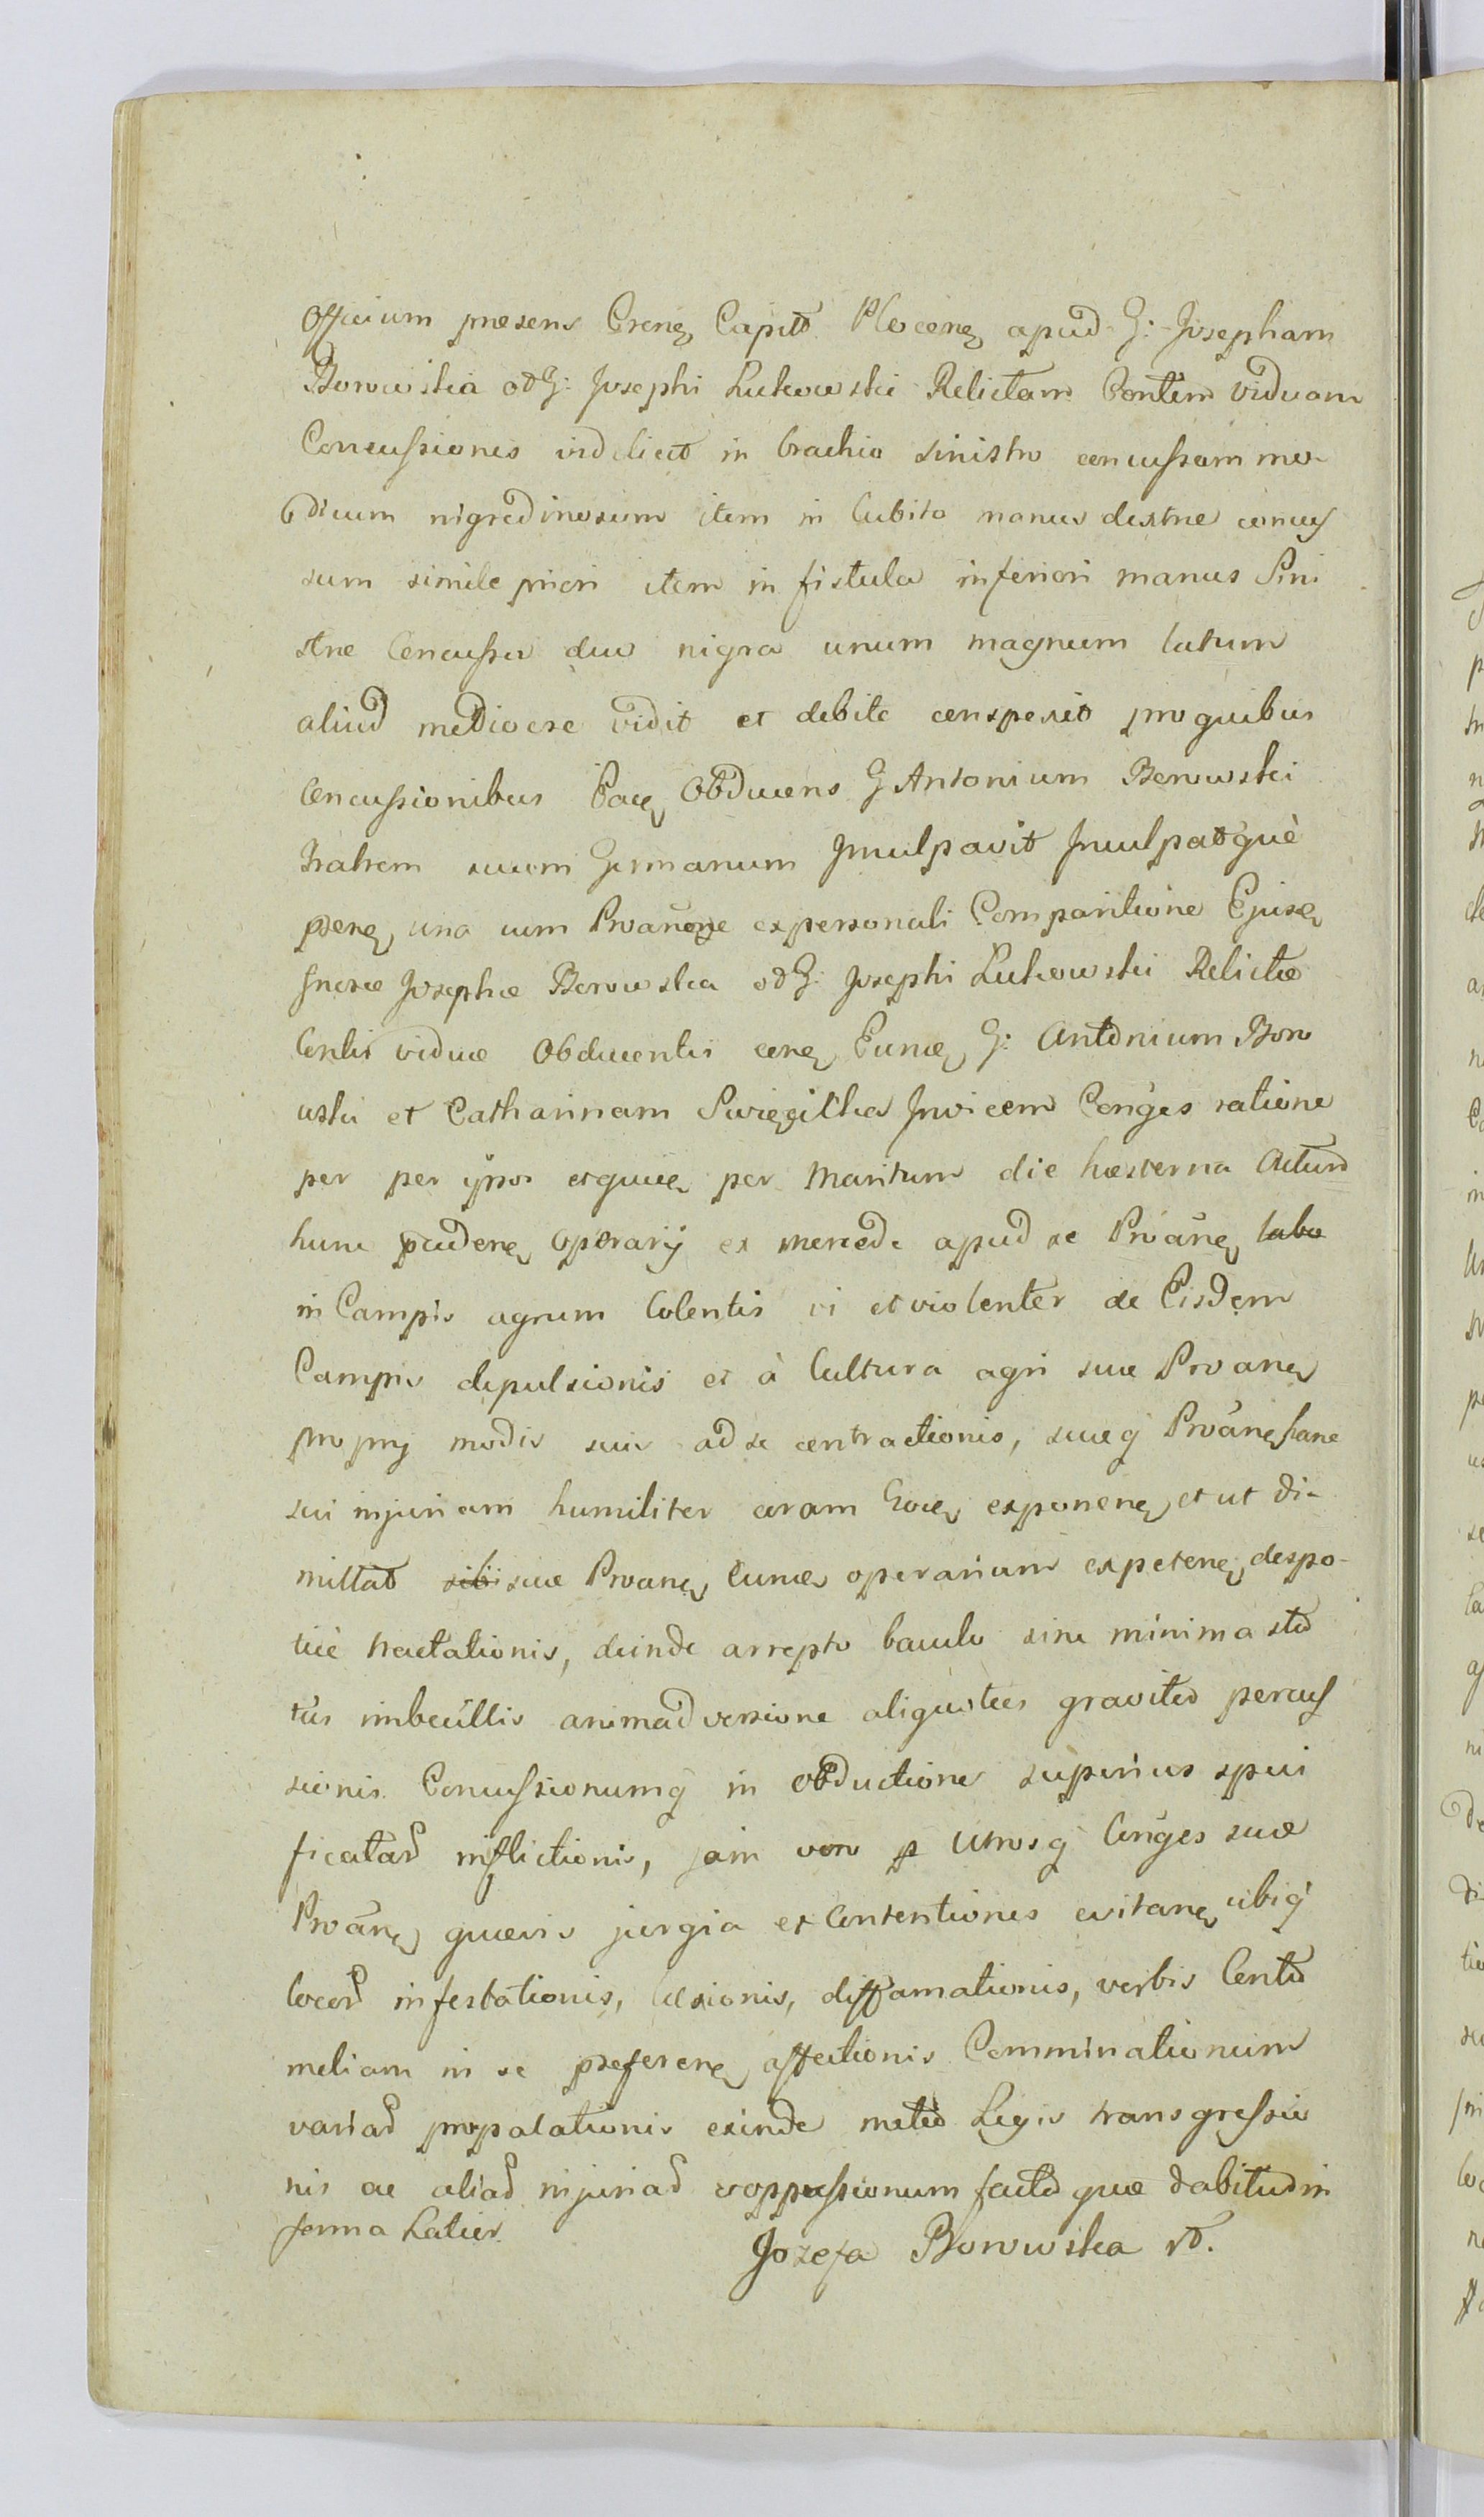 Officium præsens Crenę Capitt Plocenę apud G: Josepham
Borowska od G: Josephi Lukowski Relictam Contem viduam
Concussiones videlicet in brachio sinistro concussum mo-
dicum nigredinosum item in Cubito manus dextræ concus
sum simile priori item in fistula inferiori manus Sini
stræ Concussa duo nigra unum magnum latum
aliud mediocre vidit et debite conspexit pro quibus
Concussionibus Eaę Obducens G Antonium Borowski
fratrem suum Germanum Inculpavit Inculpatquè
pænę una cum Proanõne ex personali Comparitione Ejusę
Gnosæ Josephæ Borowska od G: Josephi Lukowski Relictæ
Contis viduæ Obducentis conę Eunę G: Antonium Boro
wski et Catharinam Invicem Conges ratione
per per ipsos etquię per Maritum die hæsterna Actum
hunc Operarij ex mercede apud se Proãnę labo
in Campis agrum Colentis vi et violenter de Eisdem
Campis depulsionis et à Cultura agri suæ Proanę
proprij modis suis ad se contractionis, suæq Proãnę sane
sui injuriam humiliter coram Eoę exponenę et ut di-
mittat sibi suæ Proanę Eunę operarium expetenę despo-
ticè tractationis, deinde arrepto baculo sine minima sta
tus imbecillis animadversione aliquoties graviter percus
sionis Concussionumq in obductione superius speci
ficatar inflictionis, jam vero p Utrosq Conges suæ
Proãnę quævis jurgia et Contentiones evitanę ubiq
locor infestationis, læsionis, diffamationis, verbis Contu
meliam in se preferenę affectionis Comminationum
variar propalationis exinde mater Legis transgressio
nis ac aliar injuriar et oppressionum factar quæ dabitur in
forma Latior.
Jozefa Borowska